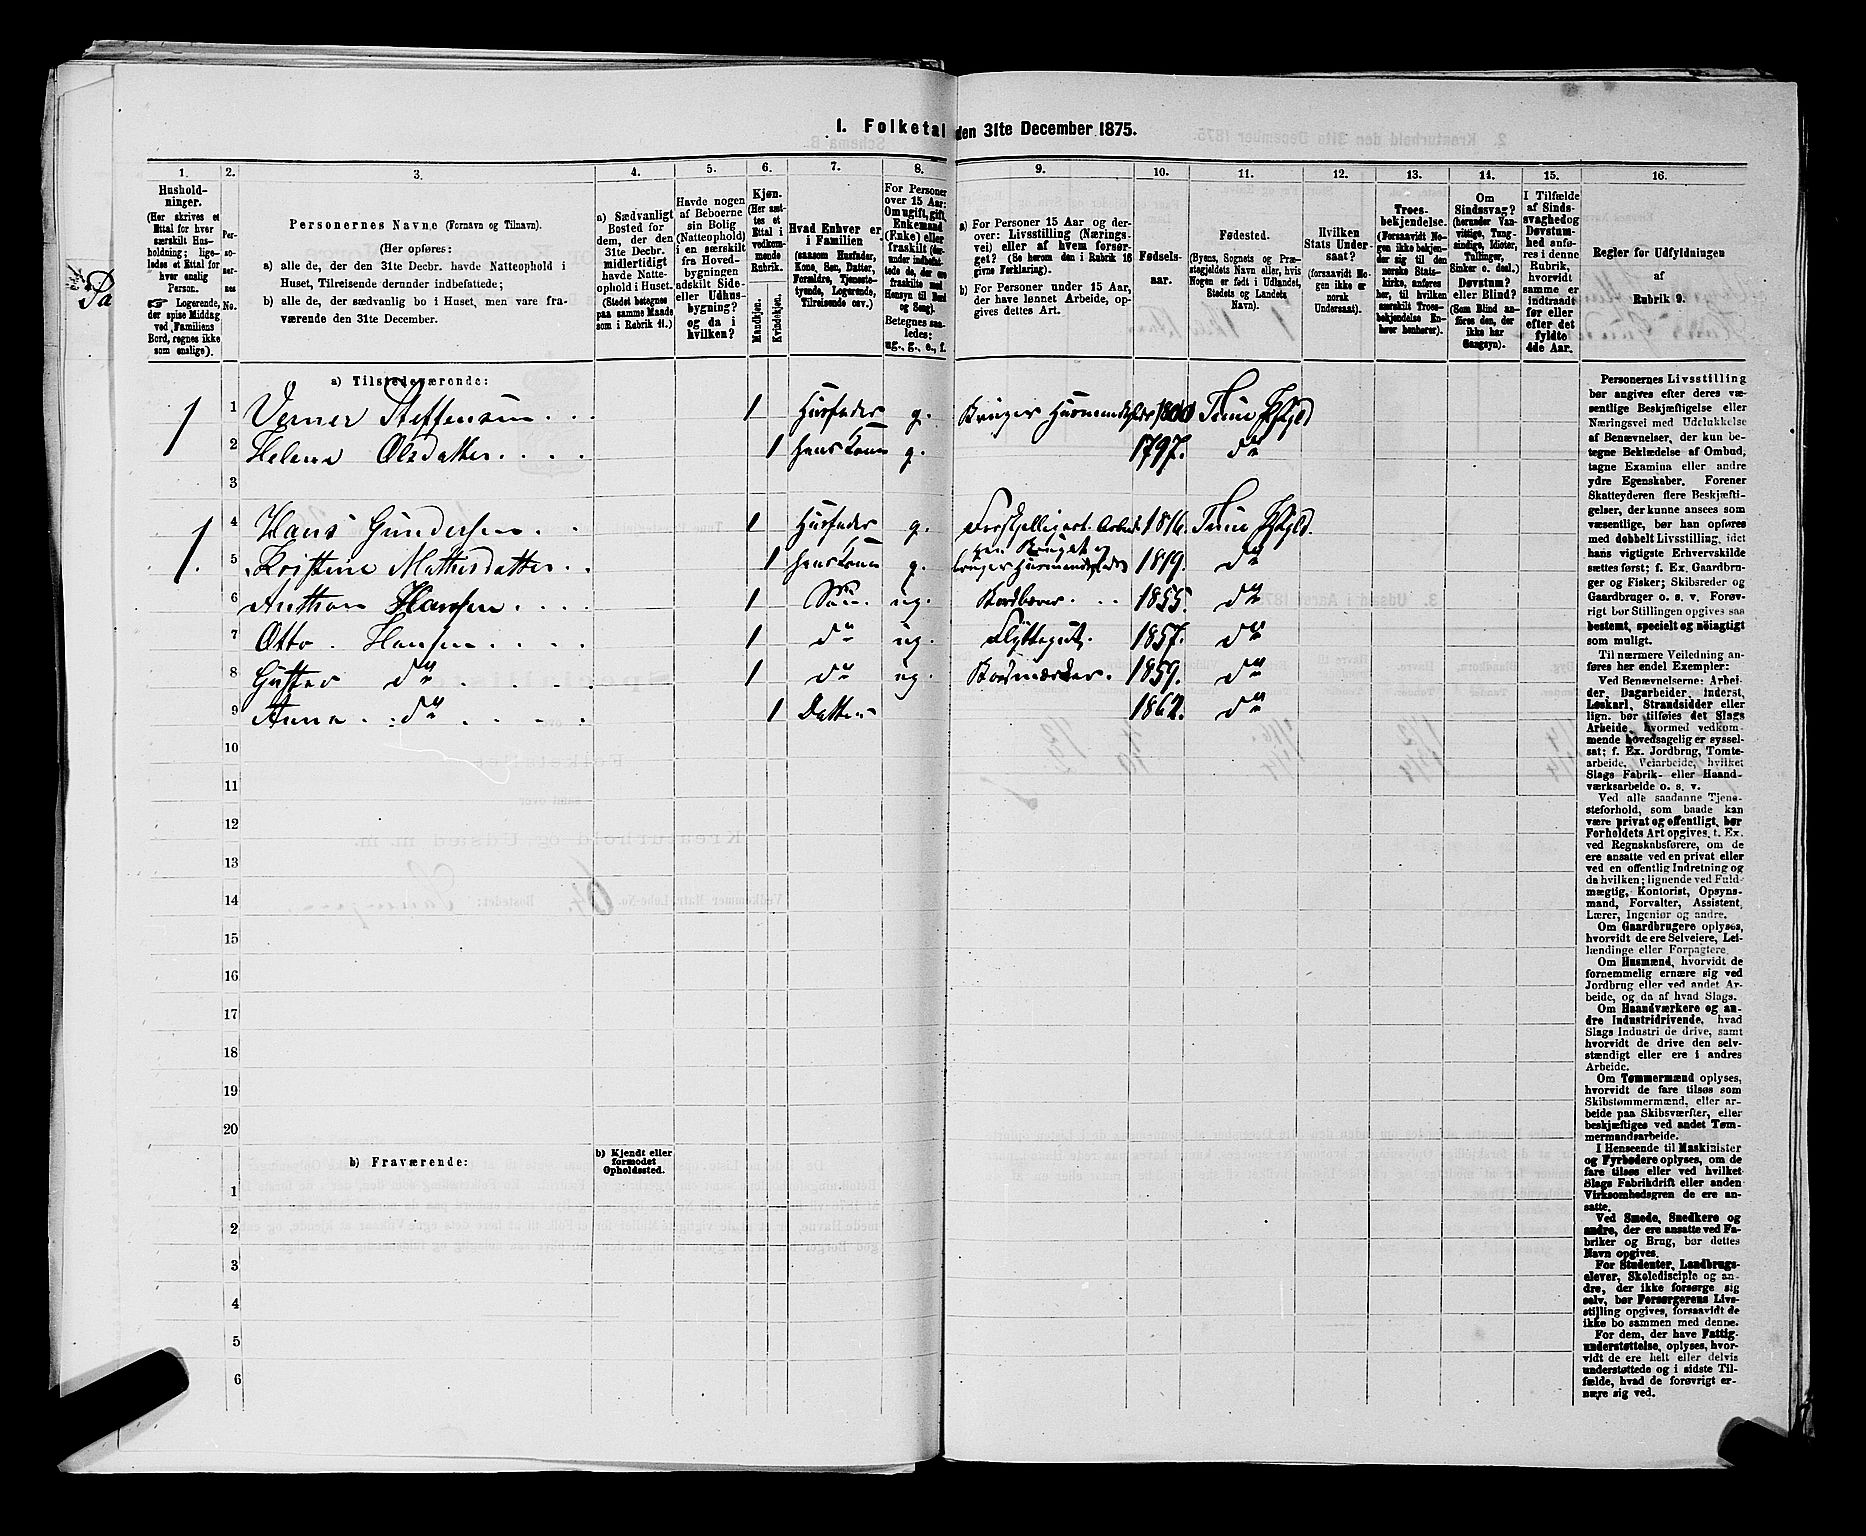 1. Folketal den 31te December 1875.
1. 2. 3. 4. 5. 6. 7. 8. 9. 10. 11. 12. 13. 14. 15. 16.
Hushold-
ninger.
(Her skrives et
Ettal for hver
særskilt Hus-
holdning; lige-
ledes et Ettal for
hver enslig
Person.
Logerende,
der spise Middag
ved Familiens
Bord, regnes ikke
som enslige).
Per-
so-
ner-
nes
No.
Personernes Navne (Fornavn og Tilnavn).
(Her opføres:
a) alle de, der den 31te Decbr. havde Natteophold i
Huset, Tilreisende derunder indbefattede;
b) alle de, der sædvanlig bo i Huset, men vare fra-
værende den 31te December.
a) Sædvanligt
Bosted for
dem, der den
31te Decbr.
midlertidigt
havde Natte-
ophold i Huset.
(Stedet betegnes
paa samme Maade
som i Rubrik 11.)
Havde nogen
af Beboerne
sin Bolig
(Natteophold)
i en særskilt
fra Hoved-
bygningen
adskilt Side-
eller Udhus-
bygning?
og da i
hvilken?
Kjøn.
(Her sæt-
tes et
Ettal i
vedkom-
mende
Rubrik.
Mandkjøn.
Kvindekjøn.
Hvad Enhver er
i Familien
(saasom Husfader,
Kone, Søn, Datter,
Forældre, Tjeneste-
tyende, Logerende,
Tilreisende osv.)
For Personer
over 15 Aar:
Om ugift, gift,
Enkemand
(Enke) eller
fraskilt (der-
under indbefat-
tede de, der ere
fraskilte med
Hensyn til Bord
og Seng).
Betegnes saa-
ledes:
ug., g., e., f.
a) For Personer 15 Aar og der-
over: Livsstilling (Nærings-
vei) eller af hvem forsør-
get? (Se herom den i Rubrik 16
givne Forklaring).
b) For Personer under 15 Aar,
der have lønnet Arbeide, op-
gives dettes Art.
Fødsels-
aar.
Fødested.
(Byens, Sognets og Præ-
stegjeldets Navn eller, hvis
Nogen er født i Udlandet,
Stedets og Landets
Navn).
Hvilken
Stats Under-
saat?
(forsaavidt No-
gen ikke er
norsk
Undersaat).
Troes-
bekjendelse.
(Forsaavidt No-
gen ikke bekjen-
der sig til den
norske Stats-
kirke, anføres
her, til hvilken
særskilt Troes-
bekjendelse En-
hver henhører).
Om
Sindssvag?
(herunder Van-
vittige, Tung-
sindige, Idioter,
Tullinger,
Sinker o. desl.)
Døvstum?
eller Blind?
(Som Blind an-
føres den, der
ikke har
Gangsyn).
I Tilfælde
af Sinds-
svaghed og
Døvstum-
hed anfø-
res i denne
Rubrik,
hvorvidt
samme er
indtraadt
før eller
efter det
fyldte
4de Aar.
Regler for Udfyldningen
af
Rubrik 9.
a) Tilstedeværende:
1 1 Verner Steffensen 1 Husfader g. Bruger Husmandsplads 1800 Tune Prgjld
2 Helena Olsdatter 1 hans Kone g. 1797. do
3
1 4 Hans Gundersen 1 Husfader g. Forskjelligart. Arbeide 1816. Tune Prgjld.
1. 5 Kristine Mathisdatter 1 hans Kone g. bruger Husmandsplads 1819. do
6 Anthon Hansen 1 Søn. ug. Bordbærer. 1855. do
7 Otto Hansen 1 do ug. Flyttegut. 1857. do
8 Gustav do 1 do ug. Bordmærker. 1859. do
9 Anna do 1 Datter 1862. do
10
11
12
13
14
15
16
17
18
19
20
b) Fraværende:
b) Kjendt eller
formodet
Opholdssted.
1
2
3
4
5
6
Personernes Livsstilling
bør angives efter deres væ-
sentlige Beskjæftigelse eller
Næringsvei med Udelukkelse
af Benævnelser, der kun be-
tegne Beklædelse af Ombud,
tagne Examina eller andre
ydre Egenskaber. Forener
Skatteyderen flere Beskjæfti-
gelser, der kunne ansees som
væsentlige, bør han opføres
med dobbelt Livsstilling, idet
hans vigtigste Erhvervskilde
sættes først; f. Ex. Gaardbru-
ger og Fisker; Skibsreder og
Gaardbruger o. s. v. Forøv-
rigt bør Stillingen opgives saa
bestemt, specielt og nøiagtigt
som muligt.
Til nærmere Veiledning an-
føres her endel Exempler:
Ved Benævnelserne: Arbei-
der, Dagarbeider, Inderst,
Løskarl, Strandsidder eller
lign. bør tilføies det Slags
Arbeide, hvormed vedkom-
mende hovedsagelig er syssel-
sat; f. Ex. Jordbrug, Tomte-
arbeide, Veiarbeide, hvilket
Slags Fabrik- eller Haand-
værksarbeide o. s. v.
Ved alle saadanne Tjene-
steforhold, som baade kan
være privat og offentligt, bør
Forholdets Art opgives, t. Ex.
ved Regnskabsførere, om de
ere ansatte ved en privat eller
ved en offentlig Indretning og
da hvilken; lignende ved Fuld-
mægtig, Kontorist, Opsyns-
mand, Forvalter, Assistent,
Lærer, Ingeniør og andre.
Om Gaardbrugere oplyses,
hvorvidt de ere Selveiere, Lei-
lændinge eller Forpagtere.
Om Husmænd, hvorvidt de
fornemmelig ernære sig ved
Jordbrug eller ved andet Ar-
beide, og da af hvad Slags.
Om Haandværkere og an-
dre Industridrivende, hvad
Slags Industri de drive, samt
hvorvidt de drive den selv-
stændigt eller ere i andres
Arbeide.
Om Tømmermænd oplyses,
hvorvidt de fare tilsøs som
Skibstømmermænd, eller ar-
beide paa Skibsværfter, eller
beskjæftiges ved andet Tøm-
mermandsarbeide.
I Henseende til Maskinister
og Fyrbødere oplyses, om de
fare tilsøs eller ved hvilket
Slags Fabrikdrift eller anden
Virksomhedsgren de ere an-
satte.
Ved Smede, Snedkere og
andre, der ere ansatte ved Fa-
briker og Brug, bør dettes
Navn opgives.
For Studenter, Landbrugs-
elever, Skoledisciple og an-
dre, der ikke forsørge sig
selv, bør Forsørgerens Livs-
stilling opgives, forsaavidt de
ikke bo sammen med denne.
For dem, der have Fattig-
understøttelse, oplyses, hvor-
vidt de ere helt eller delvis
understøttede og i sidste Til-
fælde, hvad de forøvrigt er-
nære sig ved.